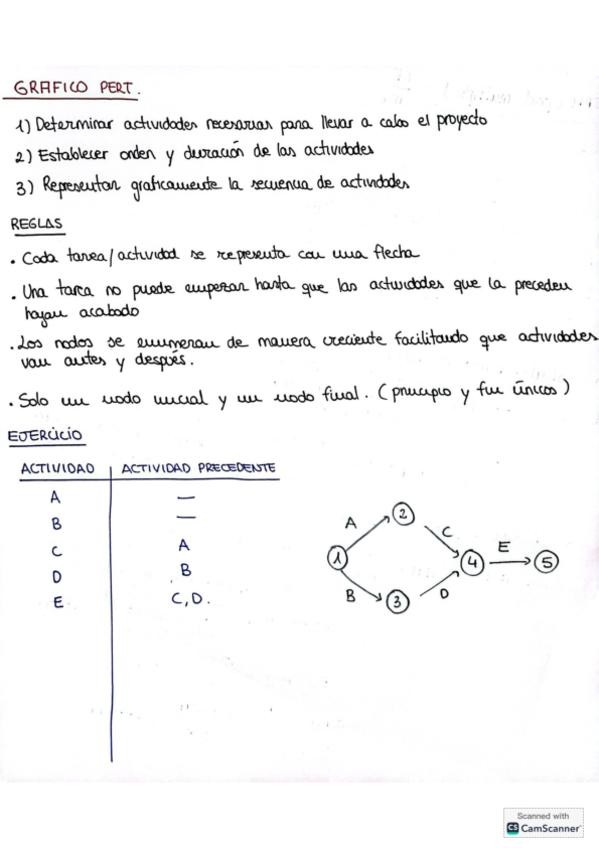 GRAFICO PERT.
1) Determinar actividades necesarias para llevar a cabo el proyecto
2) Establecer orden y duración de las actividades
3) Representar graficamente la secuencia de actividades
REGLAS
• Cada tarea/actividad se representa con una flecha
• Una tarea no puede empezar hasta que las actividades que la preceden
hayan acabado
• Los nodos se enumeran de manera creciente facilitando que actividades
van antes y después.
• Solo un nodo inicial y un nodo final. (principio y fin únicos)
EJERCICIO
ACTIVIDAD ACTIVIDAD PRECEDENTE
A —
B —
C A
D B
E C, D.
A 2 C
1 4 E 5
B 3 D
Scanned with
CS CamScanner